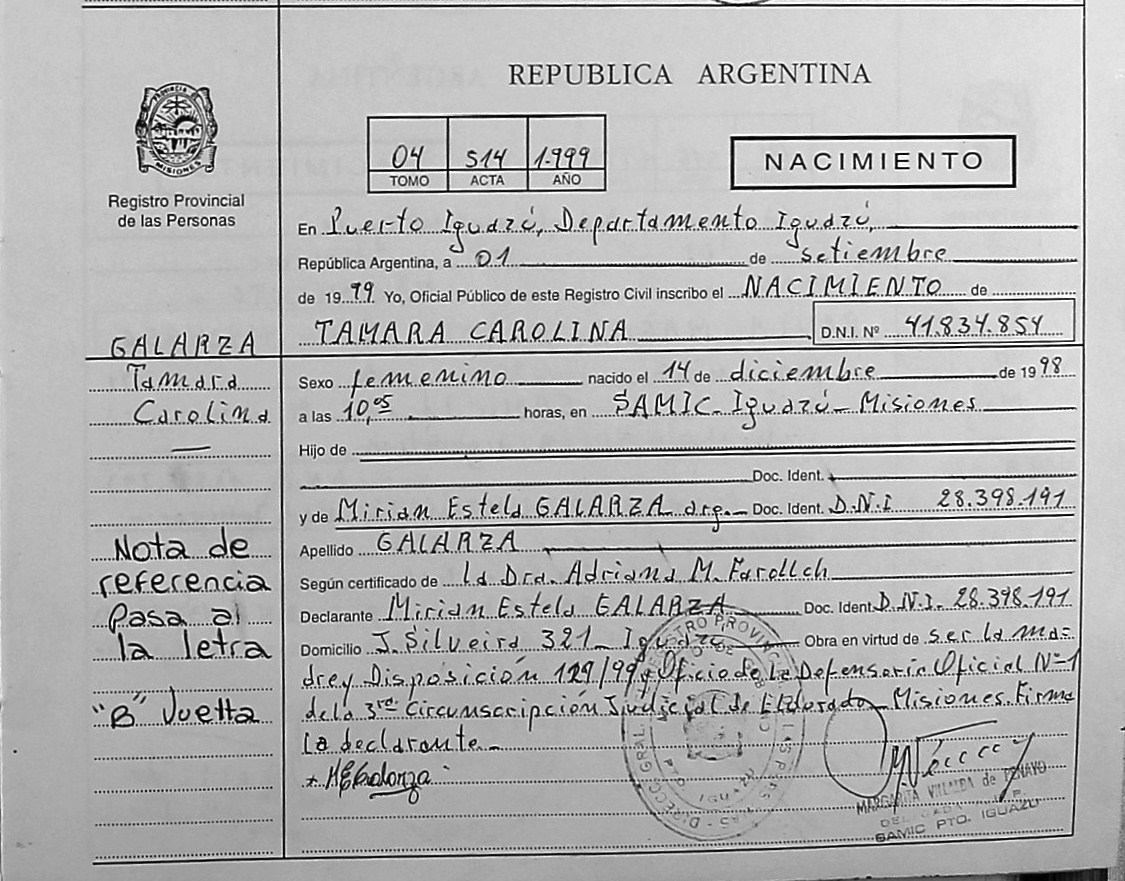 REPUBLICA ARGENTINA
PROVINCIA DE
MISIONES
Registro Provincial
de las Personas
04 514 1.999
TOMO ACTA AÑO
NACIMIENTO
En Puerto Iguazú, Departamento Iguazú,
República Argentina, a 01 de setiembre
de 1999 Yo, Oficial Público de este Registro Civil inscribo el NACIMIENTO de
TAMARA CAROLINA D.N.I. Nº 41.834.854
GALARZA
Tamara
Carolina
Sexo femenino nacido el 14 de diciembre de 1998
a las 10,05 horas, en SAMIC-Iguazú-Misiones
Hijo de
Doc. Ident.
y de Mirian Estela GALARZA arg.- Doc. Ident. D.N.I 28.398.191
Apellido GALARZA
Según certificado de la Dra. Adriana M.
Declarante Mirian Estela GALARZA Doc. Ident. D.N.I. 28.398.191
Domicilio J. Silveira 321- Iguazú Obra en virtud de ser la ma=
dre y Disposición 129/99 y Oficio de la Defensoría Oficial Nº 1
de la 3ra Circunscripción Judicial de Eldorado- Misiones. Firma
la declarante.-
Nota de
referencia
Pasa al
la letra
"B" Vuelta
MARGARITA VILLALBA de
SAMIC PTO. IGUAZU